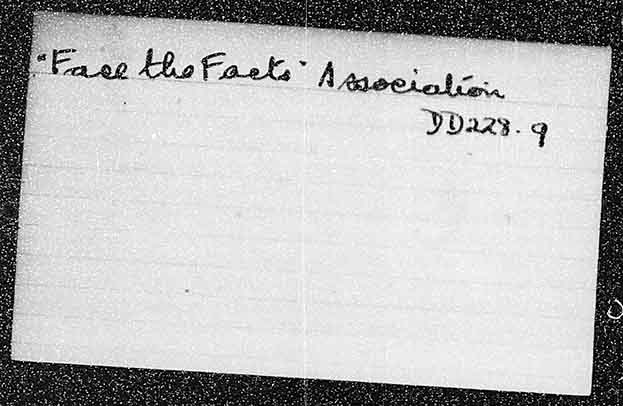 "Face the Facts" Association
DD228.9